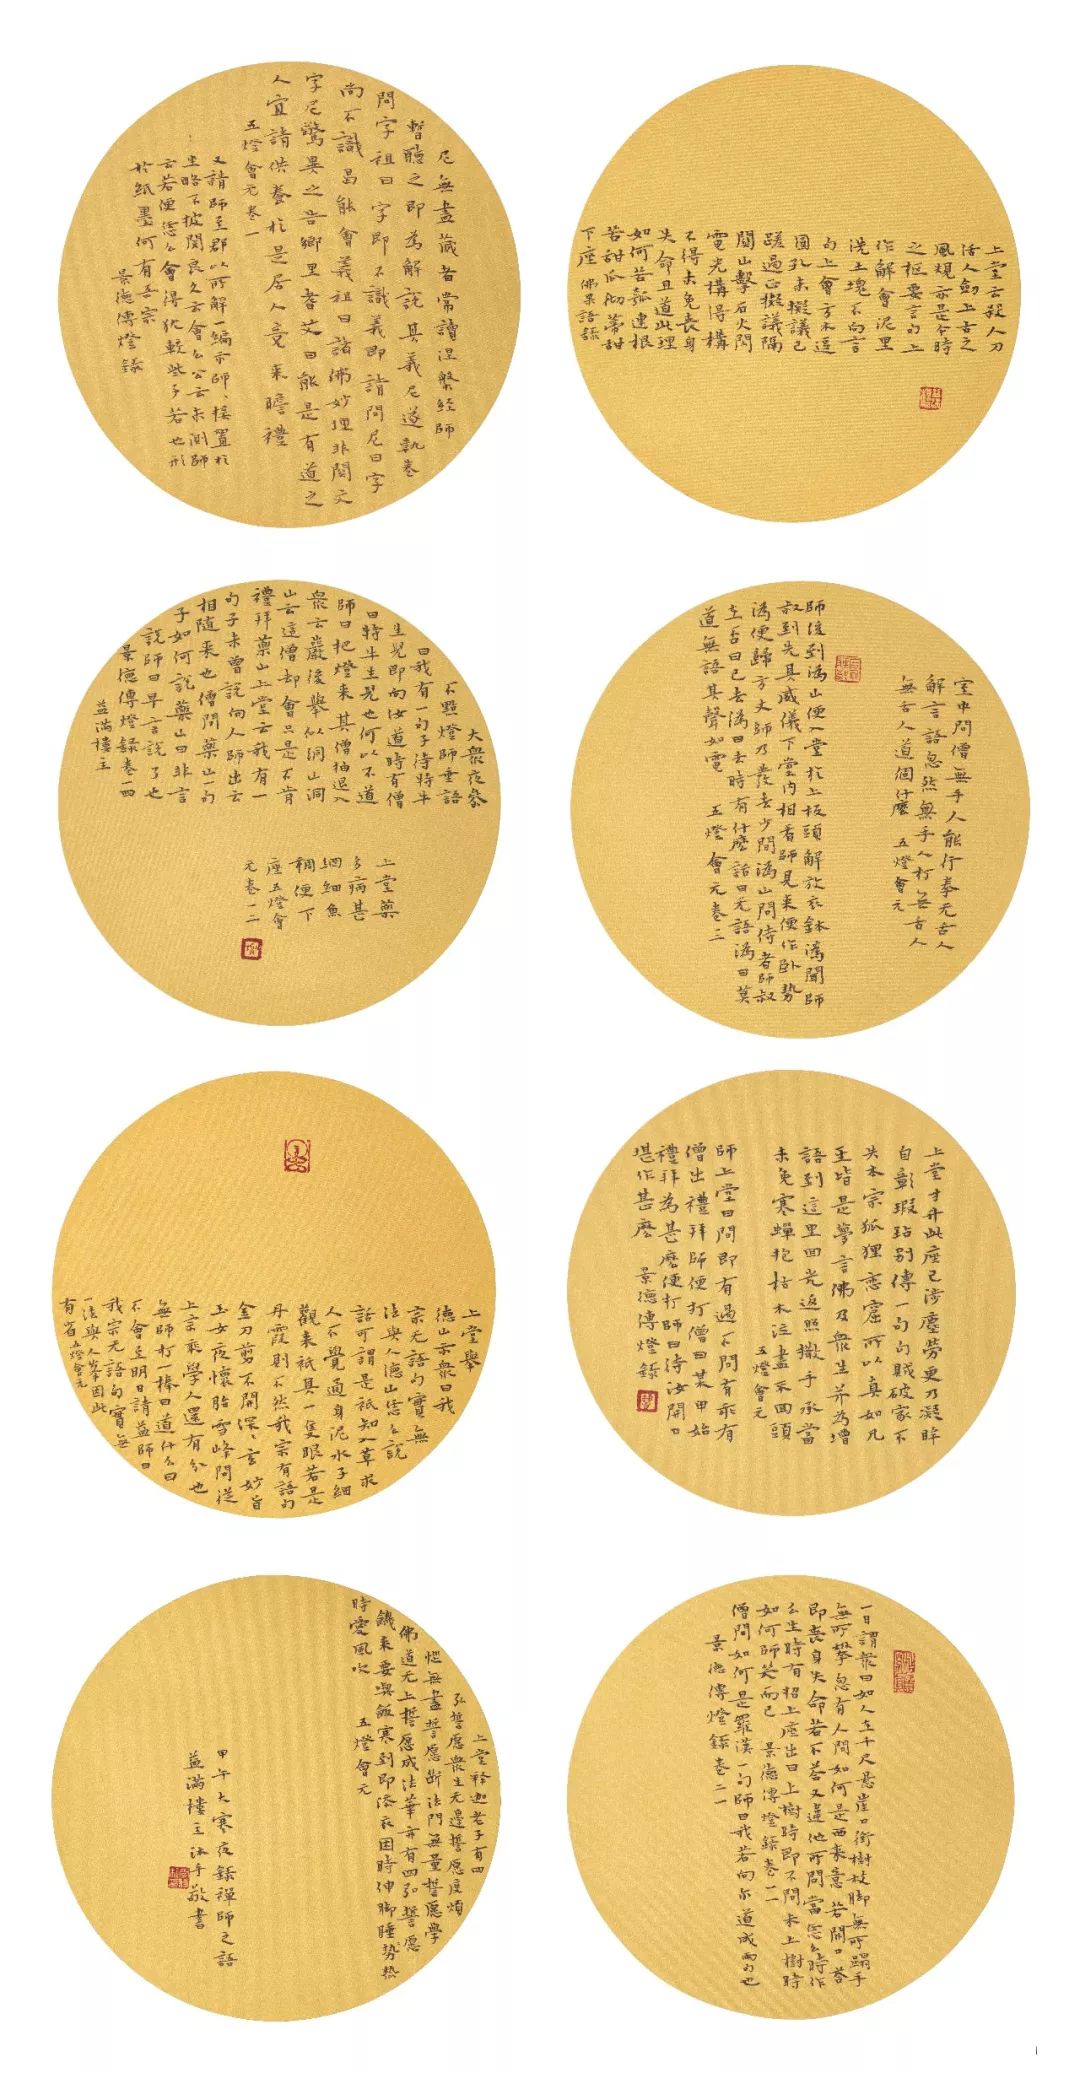 上堂云殺人刀
活人劍上古之
風規亦是今時
之樞要言句上
作解會泥里
洗土塊不向言
句上會方木逗
圓孔未擬議已
蹉過正擬議隔
關山擊石火閃
電光構得構
不得未免喪身
失命且道此理
如何苦瓠連根
苦甜瓜徹蒂甜
下座 佛果語錄
尼無盡藏者常讀涅槃經師
暫聽之即為解說其義尼遂執卷
問字祖曰字即不識義即請問尼曰字
尚不識曷能會義祖曰諸佛妙理非關文
字尼驚異之告鄉里耆艾曰能是有道之
人宜請供養於是居人竟來瞻禮
五燈會元卷一
又請師至郡以所解一編示師、接置於
坐略不披閱良久云會么公云未測師
云若便恁么會得猶較些子若也形
於紙墨何有吾宗
景德傳燈錄
室中問僧無手人能行拳无舌人
解言語忽然無手人打無舌人
無舌人道個什麼 五燈會元
師後到溈山便入堂於上板頭解放衣鉢溈聞師
叔到先具威儀下堂內相看師見來便作卧勢
溈便歸方丈師乃發去少間溈山問侍者師叔
在否曰已去溈曰去時有什麼話曰无語溈曰莫
道無語其聲如雷 五燈會元卷三
大衆夜參
不點燈師垂語
曰我有一句子待特牛
生兒即向汝道時有僧
曰特牛生兒也何以不道
師曰把燈來其僧抽退入
衆云巖後舉似洞山洞
山云這僧却會只是不肯
禮拜藥山上堂云我有一
句子未曾說向人師出云
相隨來也僧問藥山一句
子如何說藥山曰非言
說師曰早言說了也
景德傳燈錄卷一四
益滿樓主
上堂藥
多病甚
網細魚
稠便下
座五燈會
元卷一二
上堂寸升此座已涉塵勞更乃凝眸
自彰瑕玷別傳一句句賊破家不
失本宗狐狸戀窟所以真如凡
聖皆是夢言佛及衆生并為增
語到這里回光返照撒手承當
未免寒蟬抱枯木泣盡不回頭
五燈會元
師上堂曰問即有過不問有乖有
僧出禮拜師便打僧曰某甲始
禮拜為甚麼便打師曰待汝開口
堪作甚麼 景德傳燈錄
上堂舉
德山示衆曰我
宗无語句實無
法與人德山恁么說
話可謂是祇知入草求
人不覺通身泥水子細
觀來祇具一隻眼若是
丹霞則不然我宗有語句
金刀剪不開深、玄妙旨
玉女夜懷胎雪峰問從
上宗乘學人還有分也
無師打一棒曰道什么曰
不會至明日請益師曰
我宗无語句實無
一法與人峯因此
有省 五燈會元
一日謂衆曰如人在千尺懸崖口銜樹枝脚無所蹋手
無所攀忽有人問如何是西來意若開口答
即喪身失命若不答又違他所問當恁么時作
么生時有招上座出曰上樹時即不問未上樹時
如何師笑而已 景德傳燈錄卷一一
僧問如何是羅漢一句師曰我若向尔道成兩句也
景德傳燈錄卷二一
上堂釋迦老子有四
弘誓愿衆生无邊誓愿度煩
惱無盡誓愿斷法門無量誓愿學
佛道无上誓愿成法華亦有四弘誓愿
饑來要喫飯寒到即添衣困時伸脚睡勢熱
時愛風吹 五燈會元
甲午大寒夜錄禪師之語
益滿樓主沐手敬書